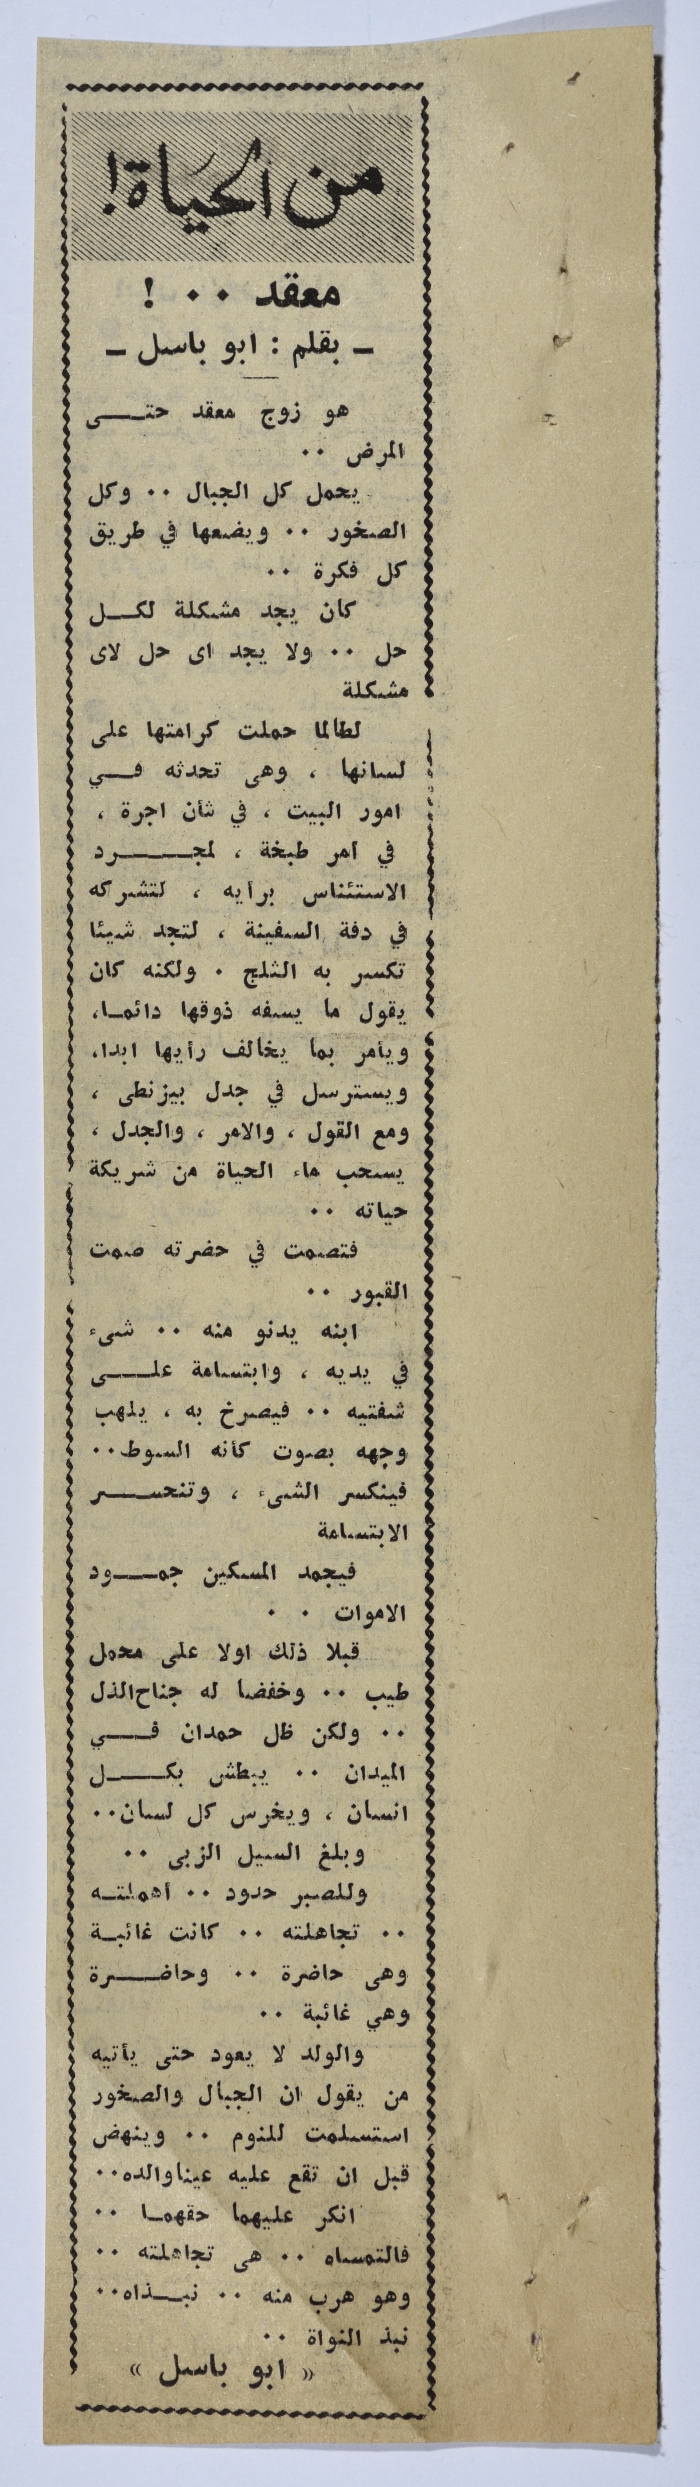 من الحياة!
معقد ٠٠ !
ـ بقلم : ابو باسل ـ
هو زوج معقد حتـــى
المرض ٠٠
يحمل كل الجبال ٠٠ وكل
الصخور ٠٠ ويضعها في طريق
كل فكرة ٠٠
كان يجد مشكلة لكـــل
حل ٠٠ ولا يجد اى حل لاى
مشكلة
لطالما حملت كرامتها على
لسانها ، وهى تحدثه فـــي
امور البيت ، في شأن اجرة ،
في امر طبخة ، لمجـــــرد
الاستئناس برأيه ، لتشركه
في دفة السفينة ، لتجد شيئا
تكسر به الثلج ٠ ولكنه كان
يقول ما يسفه ذوقها دائمـا،
ويأمر بما يخالف رأيها ابدا،
ويسترسل في جدل بيزنطى ،
ومع القول ، والامر ، والجدل ،
يسحب ماء الحياة من شريكة
حياته ٠٠
فتصمت في حضرته صمت
القبور ٠٠
ابنه يدنو منه ٠٠ شىء
في يديه ، وابتسامة علـــى
شفتيه ٠٠ فيصرخ به ، يلهب
وجهه بصوت كأنه السوط٠٠
فينكسر الشىء ، وتنحســـر
الابتسامة
فيجمد المسكين جمـــود
الاموات ٠ ٠
قبلا ذلك اولا على محمل
طيب ٠٠ وخفضا له جناح الذل
٠٠ ولكن ظل حمدان فـــي
الميدان ٠٠ يبطش بكـــل
انسان ، ويخرس كل لسان٠٠
وبلغ السيل الزبى ٠٠
وللصبر حدود ٠٠ أهملتـه
٠٠ تجاهلته ٠٠ كانت غائبـة
وهى حاضرة ٠٠ وحاضـــرة
وهي غائبة ٠٠
والولد لا يعود حتى يأتيه
من يقول ان الجبال والصخور
استسلمت للنوم ٠٠ وينهض
قبل ان تقع عليه عينا والده٠٠
انكر عليهما حقهمـا ٠٠
فالتمساه ٠٠ هى تجاهلته ٠٠
وهو هرب منه ٠٠ نبـــذاه٠٠
نبذ النواة ٠٠
« ابو باسل »